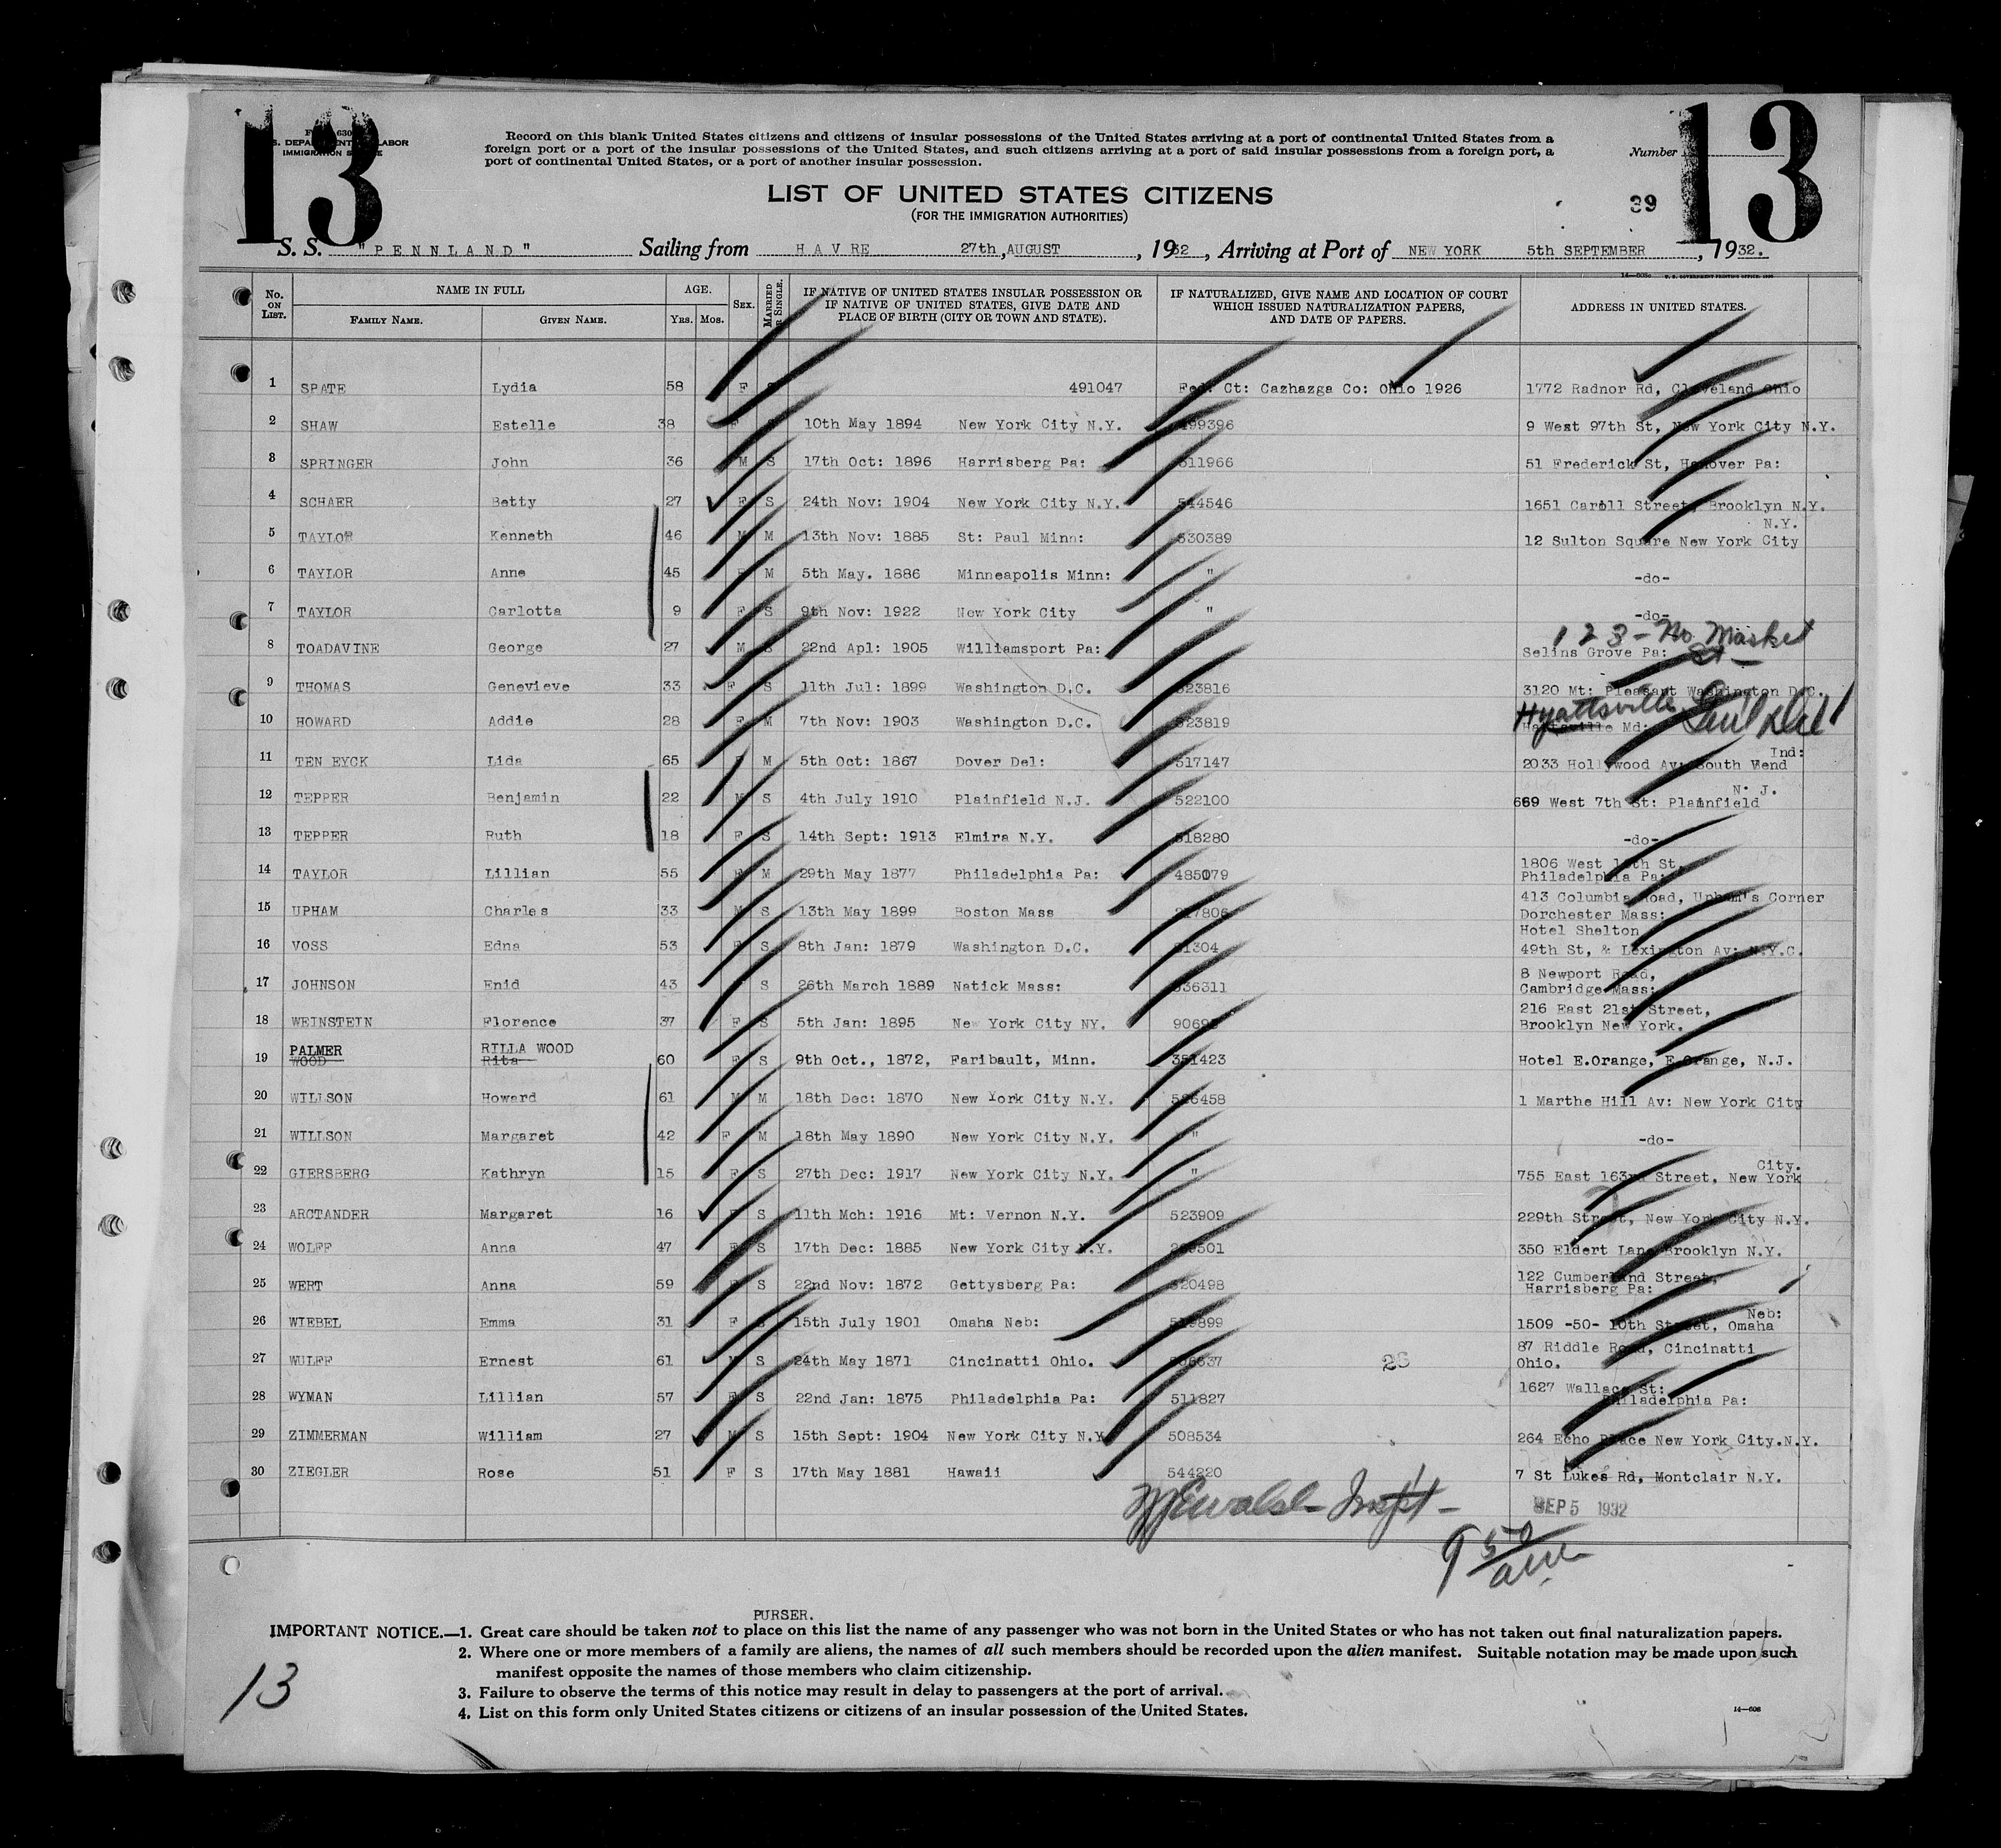 13
13
S. DEPARTMENT OF LABOR
IMMIGRATION SERVICE
Record on this blank United States citizens and citizens of insular possessions of the United States arriving at a port of continental United States from a
foreign port or a port of the insular possessions of the United States, and such citizens arriving at a port of said insular possessions from a foreign port, a
port of continental United States, or a port of another insular possession.
Number
LIST OF UNITED STATES CITIZENS
(FOR THE IMMIGRATION AUTHORITIES)
39
S. S. "PENNLAND" Sailing from HAVRE 27th, AUGUST, 1932, Arriving at Port of NEW YORK 5th SEPTEMBER, 1932.
No. ON LIST. NAME IN FULL FAMILY NAME. GIVEN NAME. AGE. YRS. MOS. SEX. MARRIED OR SINGLE. IF NATIVE OF UNITED STATES INSULAR POSSESSION OR IF NATIVE OF UNITED STATES, GIVE DATE AND PLACE OF BIRTH (CITY OR TOWN AND STATE). IF NATURALIZED, GIVE NAME AND LOCATION OF COURT WHICH ISSUED NATURALIZATION PAPERS, AND DATE OF PAPERS. ADDRESS IN UNITED STATES.
1 SPATE Lydia 58 F S 491047 Fed. Ct: Cazhazga Co: Ohio 1926 1772 Radnor Rd, Cleveland Ohio
2 SHAW Estelle 38 F S 10th May 1894 New York City N.Y. 499396 9 West 97th St, New York City N.Y.
3 SPRINGER John 36 M S 17th Oct: 1896 Harrisberg Pa: 511966 51 Frederick St, Hanover Pa:
4 SCHAER Betty 27 F S 24th Nov: 1904 New York City N.Y. 544546 1651 Caroll Street, Brooklyn N.Y.
5 TAYLOR Kenneth 46 M M 13th Nov: 1885 St: Paul Minn: 530389 12 Sulton Square New York City N.Y.
6 TAYLOR Anne 45 F M 5th May. 1886 Minneapolis Minn: " -do-
7 TAYLOR Carlotta 9 F S 9th Nov: 1922 New York City " -do-
8 TOADAVINE George 27 M S 22nd Apl: 1905 Williamsport Pa: 123-No Market St- Selins Grove Pa:
9 THOMAS Genevieve 33 F S 11th Jul: 1899 Washington D.C. 523816 3120 Mt: Pleasant Washington D.C.
10 HOWARD Addie 28 F M 7th Nov: 1903 Washington D.C. 523819 Hyattsville Md:
11 TEN EYCK Lida 65 F M 5th Oct: 1867 Dover Del: 517147 2033 Hollywood Av: South Bend Ind:
12 TEPPER Benjamin 22 M S 4th July 1910 Plainfield N.J. 522100 669 West 7th St: Plainfield N. J.
13 TEPPER Ruth 18 F S 14th Sept: 1913 Elmira N.Y. 518280 -do-
14 TAYLOR Lillian 55 F M 29th May 1877 Philadelphia Pa: 485079 1806 West St, Philadelphia Pa:
15 UPHAM Charles 33 M S 13th May 1899 Boston Mass 413 Columbia Road, Upham's Corner Dorchester Mass:
16 VOSS Edna 53 F S 8th Jan: 1879 Washington D.C. Hotel Shelton 49th St, & Lexington Av: N.Y.C.
17 JOHNSON Enid 43 S 26th March 1889 Natick Mass: 536311 8 Newport Road, Cambridge Mass:
18 WEINSTEIN Florence 37 F S 5th Jan: 1895 New York City NY. 216 East 21st Street, Brooklyn New York.
19 PALMER WOOD RILLA WOOD Rita 60 F S 9th Oct., 1872, Faribault, Minn. 351423 Hotel E.Orange, E.Orange, N.J.
20 WILLSON Howard 61 M M 18th Dec: 1870 New York City N.Y. 526458 1 Marthe Hill Av: New York City
21 WILLSON Margaret 42 F M 18th May 1890 New York City N.Y. " -do-
22 GIERSBERG Kathryn 15 F S 27th Dec: 1917 New York City N.Y. " 755 East 163rd Street, New York City.
23 ARCTANDER Margaret 16 F S 11th Mch: 1916 Mt: Vernon N.Y. 523909 229th Street, New York City N.Y.
24 WOLFF Anna 47 F S 17th Dec: 1885 New York City N.Y. 350 Eldert Lane Brooklyn N.Y.
25 WERT Anna 59 F S 22nd Nov: 1872 Gettysberg Pa: 520498 122 Cumberland Street, Harrisberg Pa:
26 WIEBEL Emma 31 F S 15th July 1901 Omaha Neb: 1509 -50- 10th Street, Omaha Neb:
27 WULFF Ernest 61 M S 24th May 1871 Cincinatti Ohio. 26 87 Riddle Road, Cincinatti Ohio.
28 WYMAN Lillian 57 F S 22nd Jan: 1875 Philadelphia Pa: 511827 1627 Wallace St: Philadelphia Pa:
29 ZIMMERMAN William 27 M S 15th Sept: 1904 New York City N.Y. 508534 264 Echo Place New York City.N.Y.
30 ZIEGLER Rose 51 F S 17th May 1881 Hawaii 544220 7 St Lukes Rd, Montclair N.Y.
Walsh Inspt-
SEP 5 1932
9 50 am
PURSER.
IMPORTANT NOTICE.—1. Great care should be taken not to place on this list the name of any passenger who was not born in the United States or who has not taken out final naturalization papers.
2. Where one or more members of a family are aliens, the names of all such members should be recorded upon the alien manifest. Suitable notation may be made upon such
manifest opposite the names of those members who claim citizenship.
3. Failure to observe the terms of this notice may result in delay to passengers at the port of arrival.
4. List on this form only United States citizens or citizens of an insular possession of the United States.
13
14—608